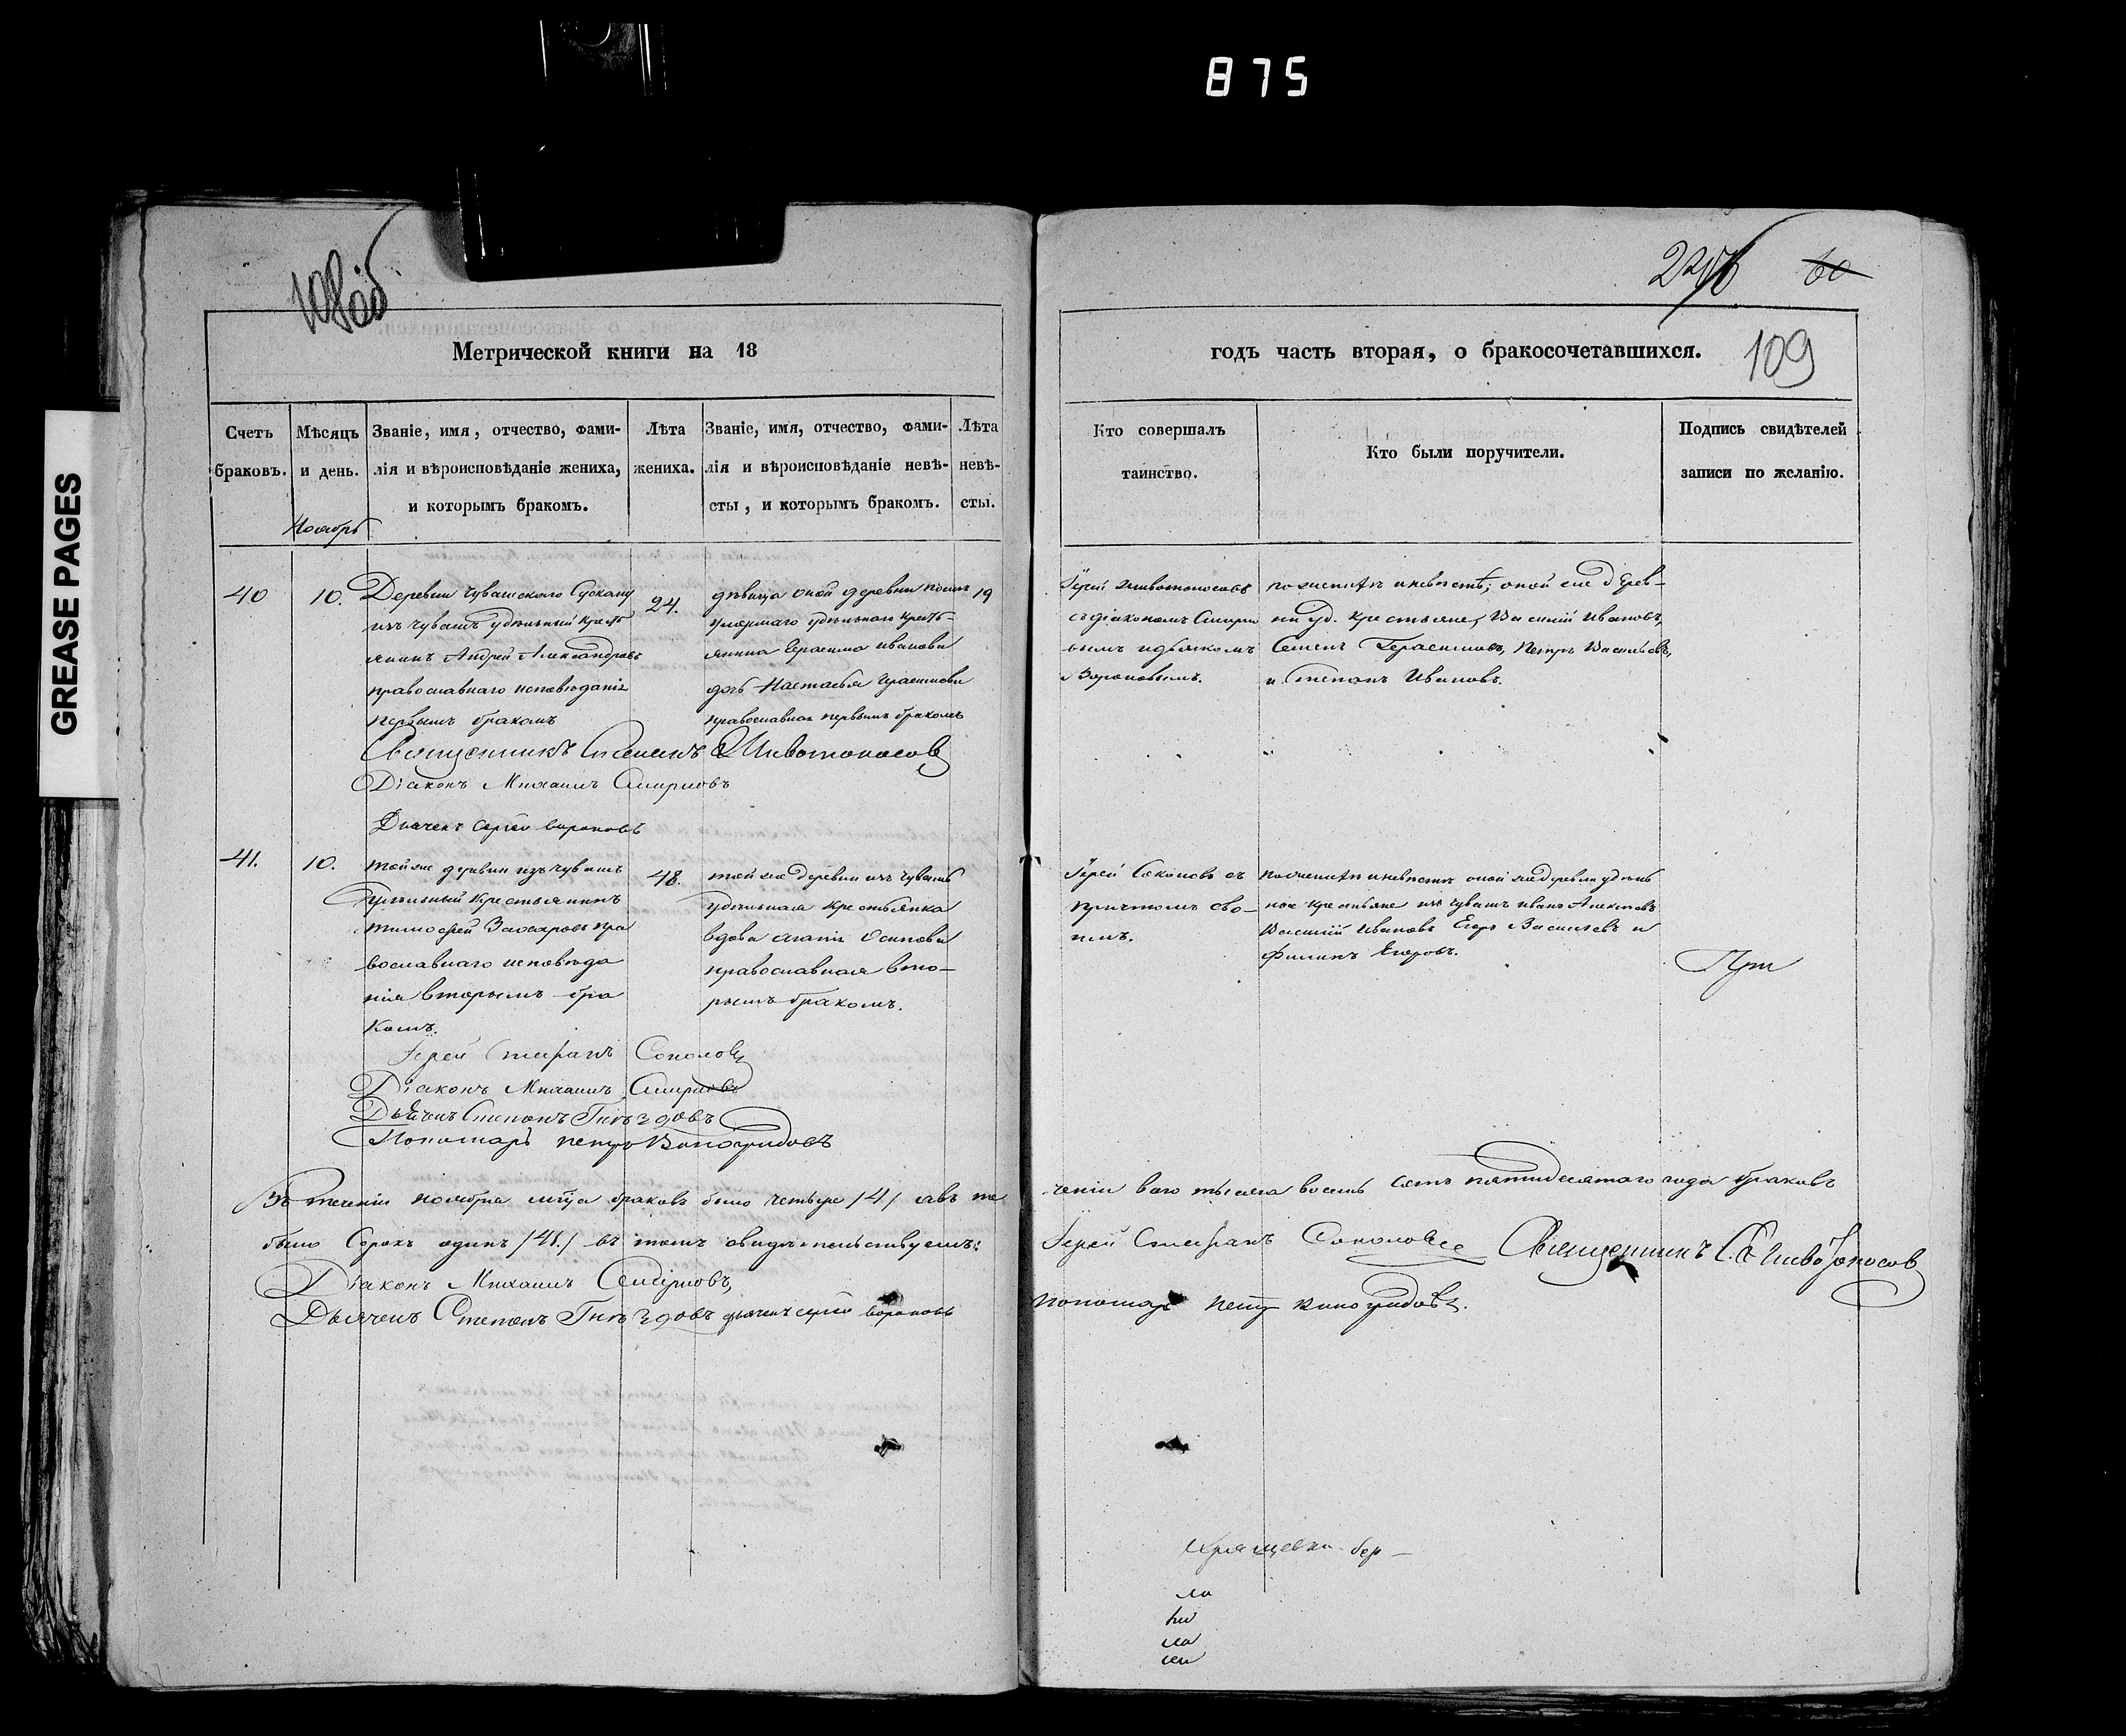 875
GREASE PAGES
108об
60
109
Метрической книги на 18
годъ часть вторая, о бракосочетавшихся.
Счетъ браковъ.
Мѣсяцъ и день.
Званіе, имя, отчество, фами-
лія и вѣроисповѣданіе жениха,
и которымъ бракомъ.
Лѣта
жениха.
Званіе, имя, отчество, фами-
лія и вѣроисповѣданіе невѣ-
сты, и которымъ бракомъ.
Лѣта
невѣ-
сты.
Кто совершалъ
таинство.
Кто были поручители.
Подпись свидѣтелей
записи по желанію.
Ноябрь
40
10.
Деревни Чувашского
изъ чувашъ удѣльный крестъ
янинъ Андрей Александровъ
православнаго исповѣданія
первымъ бракомъ
24.
дѣвица оной деревни
умершаго удѣльнаго кресть-
янина Герасима Иванова
дочь Настасья Герасимова
православная первымъ бракомъ
19
Іерей Животоносовъ
съ діакономъ Смирно
вымъ и дьячкомъ
Вороновымъ.
по женихѣ и невѣстѣ; оной же дерев-
ни уд. крестьяне, Василій Ивановъ,
Семенъ Герасимовъ, Петръ Васильевъ,
и Степанъ Ивановъ.
Священникъ Животоносовъ
Діаконъ Михаилъ Смирновъ
Дьячекъ Сергей Вороновъ
41.
10.
той же деревни изъ чувашъ
удѣльный крестьянинъ
Тимофей Захаровъ пра
вославнаго исповѣда
нія вторымъ бра
комъ.
48.
той же деревни изъ чувашъ
удѣльная крестьянка
вдова Осипова
православная вто-
рымъ бракомъ.
Іерей Соколовъ съ
причтомъ сво-
имъ.
по женихѣ и невѣстѣ оной же деревни удѣль
ные крестьяне изъ чувашъ Иванъ Алексѣевъ
Василій Ивановъ Егоръ Васильевъ и
Филипъ Егоровъ.
При
Іерей Стефанъ Соколовъ
Діаконъ Михаилъ Смирновъ
Дьячекъ Степанъ Гнѣздовъ
Пономарь Петръ Виноградовъ
Въ теченіи ноября мѣсяца браковъ было четыре /4/ а въ те
ченіи всего тысяча восемь сотъ пятидесятаго года браковъ
было Сорокъ одинъ /41./ въ томъ свидѣтельствуемъ:
Іерей Стефанъ Соколовъ Священникъ С. Животоносовъ
Діаконъ Михаилъ Смирновъ,
Дьячекъ Степанъ Гнѣздовъ дьячекъ Сергей Вороновъ
пономарь Петръ Виноградовъ.
ла